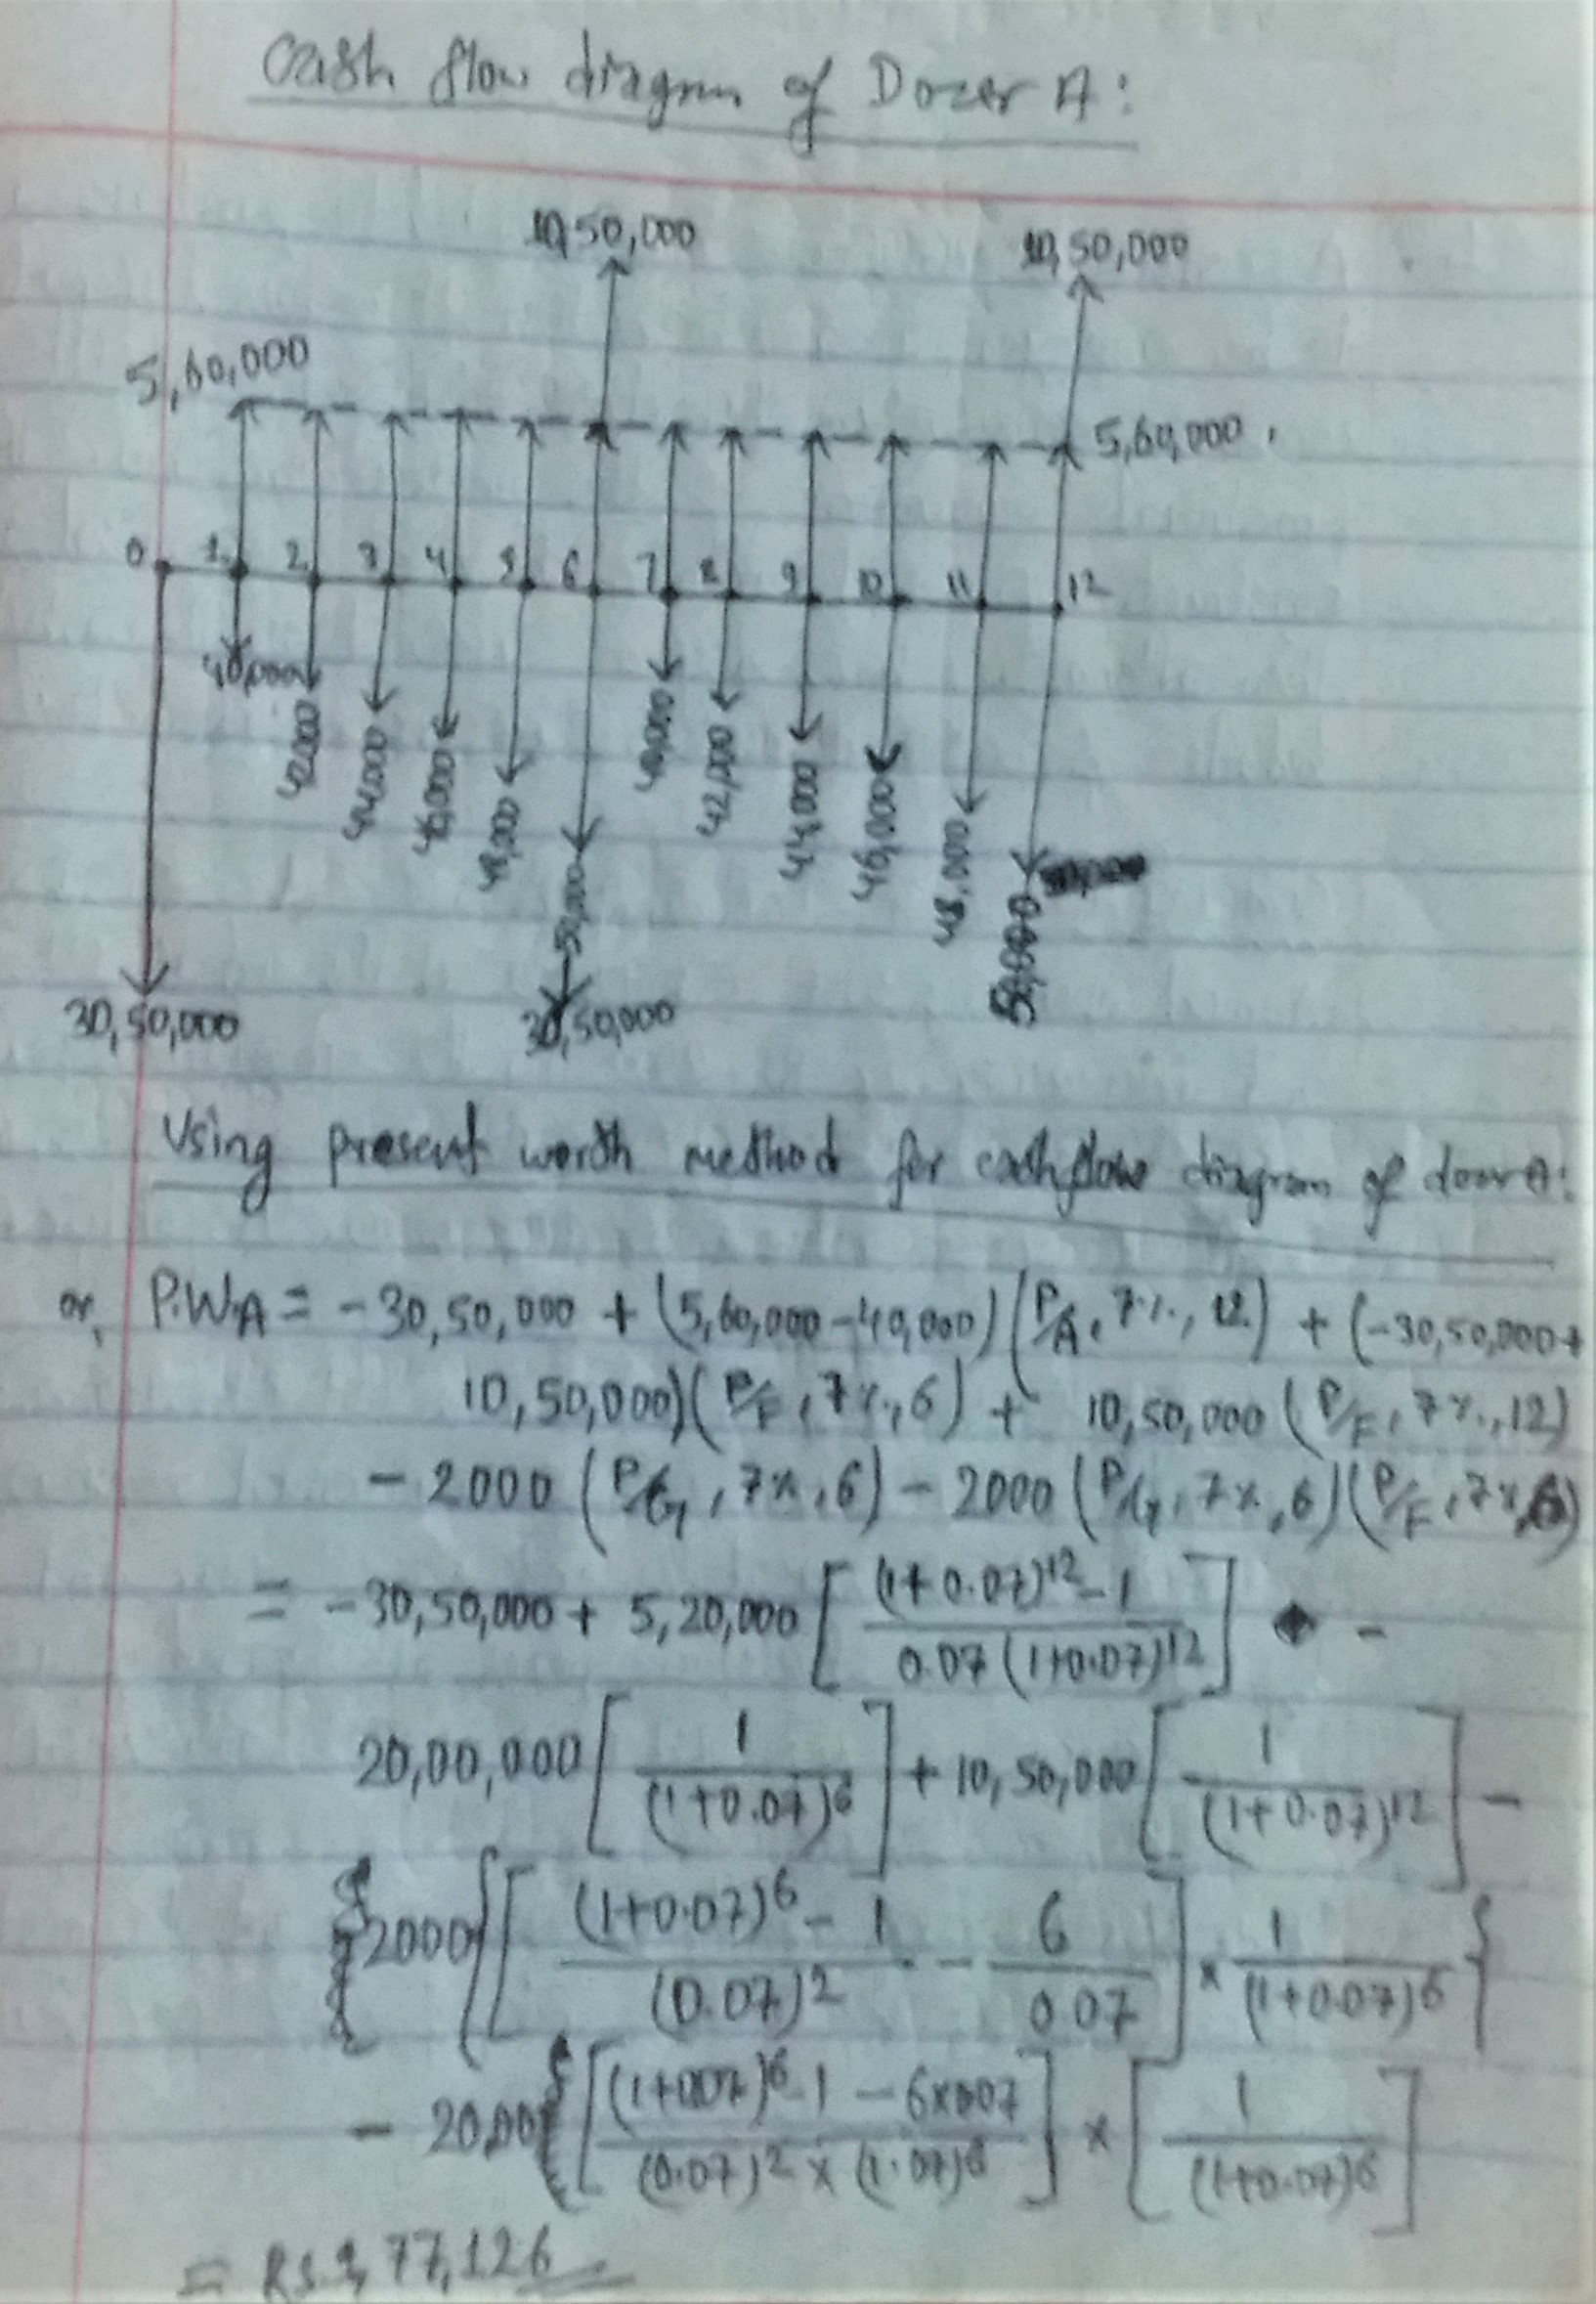 Cash flow diagram of Dozer A:
10,50,000 10,50,000
5,60,000
5,60,000
0 1 2 3 4 5 6 7 8 9 10 11 12
40,000 42000 44,000 46,000 48,000 50,000 40,000 42,000 44,000 46,000 48,000 50,000
30,50,000 30,50,000
Using present worth method for cashflow diagram of dozer A:
or, P.W.A = - 30,50,000 + (5,60,000 - 40,000) (P/A, 7%, 12) + (-30,50,000 +
10,50,000) (P/F, 7%, 6) + 10,50,000 (P/F, 7%, 12)
- 2000 (P/G, 7%, 6) - 2000 (P/G, 7%, 6) (P/F, 7%, 6)
= - 30,50,000 + 5,20,000 [ (1+0.07)^12 - 1 / 0.07 (1+0.07)^12 ] -
20,00,000 [ 1 / (1+0.07)^6 ] + 10,50,000 [ 1 / (1+0.07)^12 ] -
2000 { [ (1+0.07)^6 - 1 / (0.07)^2 - 6 / 0.07 ] × 1 / (1+0.07)^6 }
- 2000 [ (1+0.07)^6 - 1 - 6×0.07 / (0.07)^2 × (1.07)^6 ] × [ 1 / (1+0.07)^6 ]
= Rs. 77,126